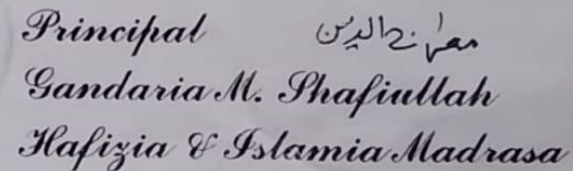 Principal معراج الدين
Gandaria M. Shafiullah
Hafizia & Islamia Madrasa